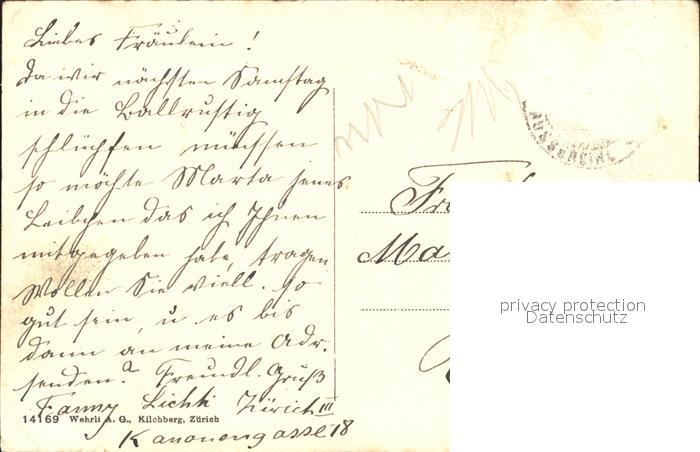 Liebes Fräulein!
Da wir nächsten Samstag
in die Ballrustig
schlüpfen müssen
so möchte Marta jenes
Leibchen das ich Ihnen
mitgegeben habe, tragen
Wollen Sie viell. so
gut sein, u. es bis
dann an meine Adr.
senden? Freundl. Gruß
Fanny Lichti Zürich III
Kanonengasse 18
14169 Wehrli A. G., Kilchberg, Zürich
AUSSERSIHL
Fr
Ma
privacy protection
Datenschutz